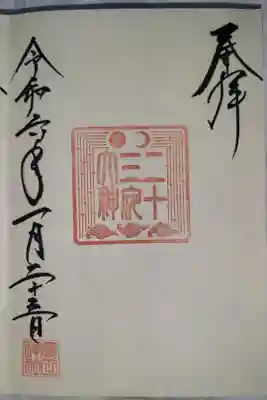 奉拝
二十
三夜
大神
令和六年一月二十三日